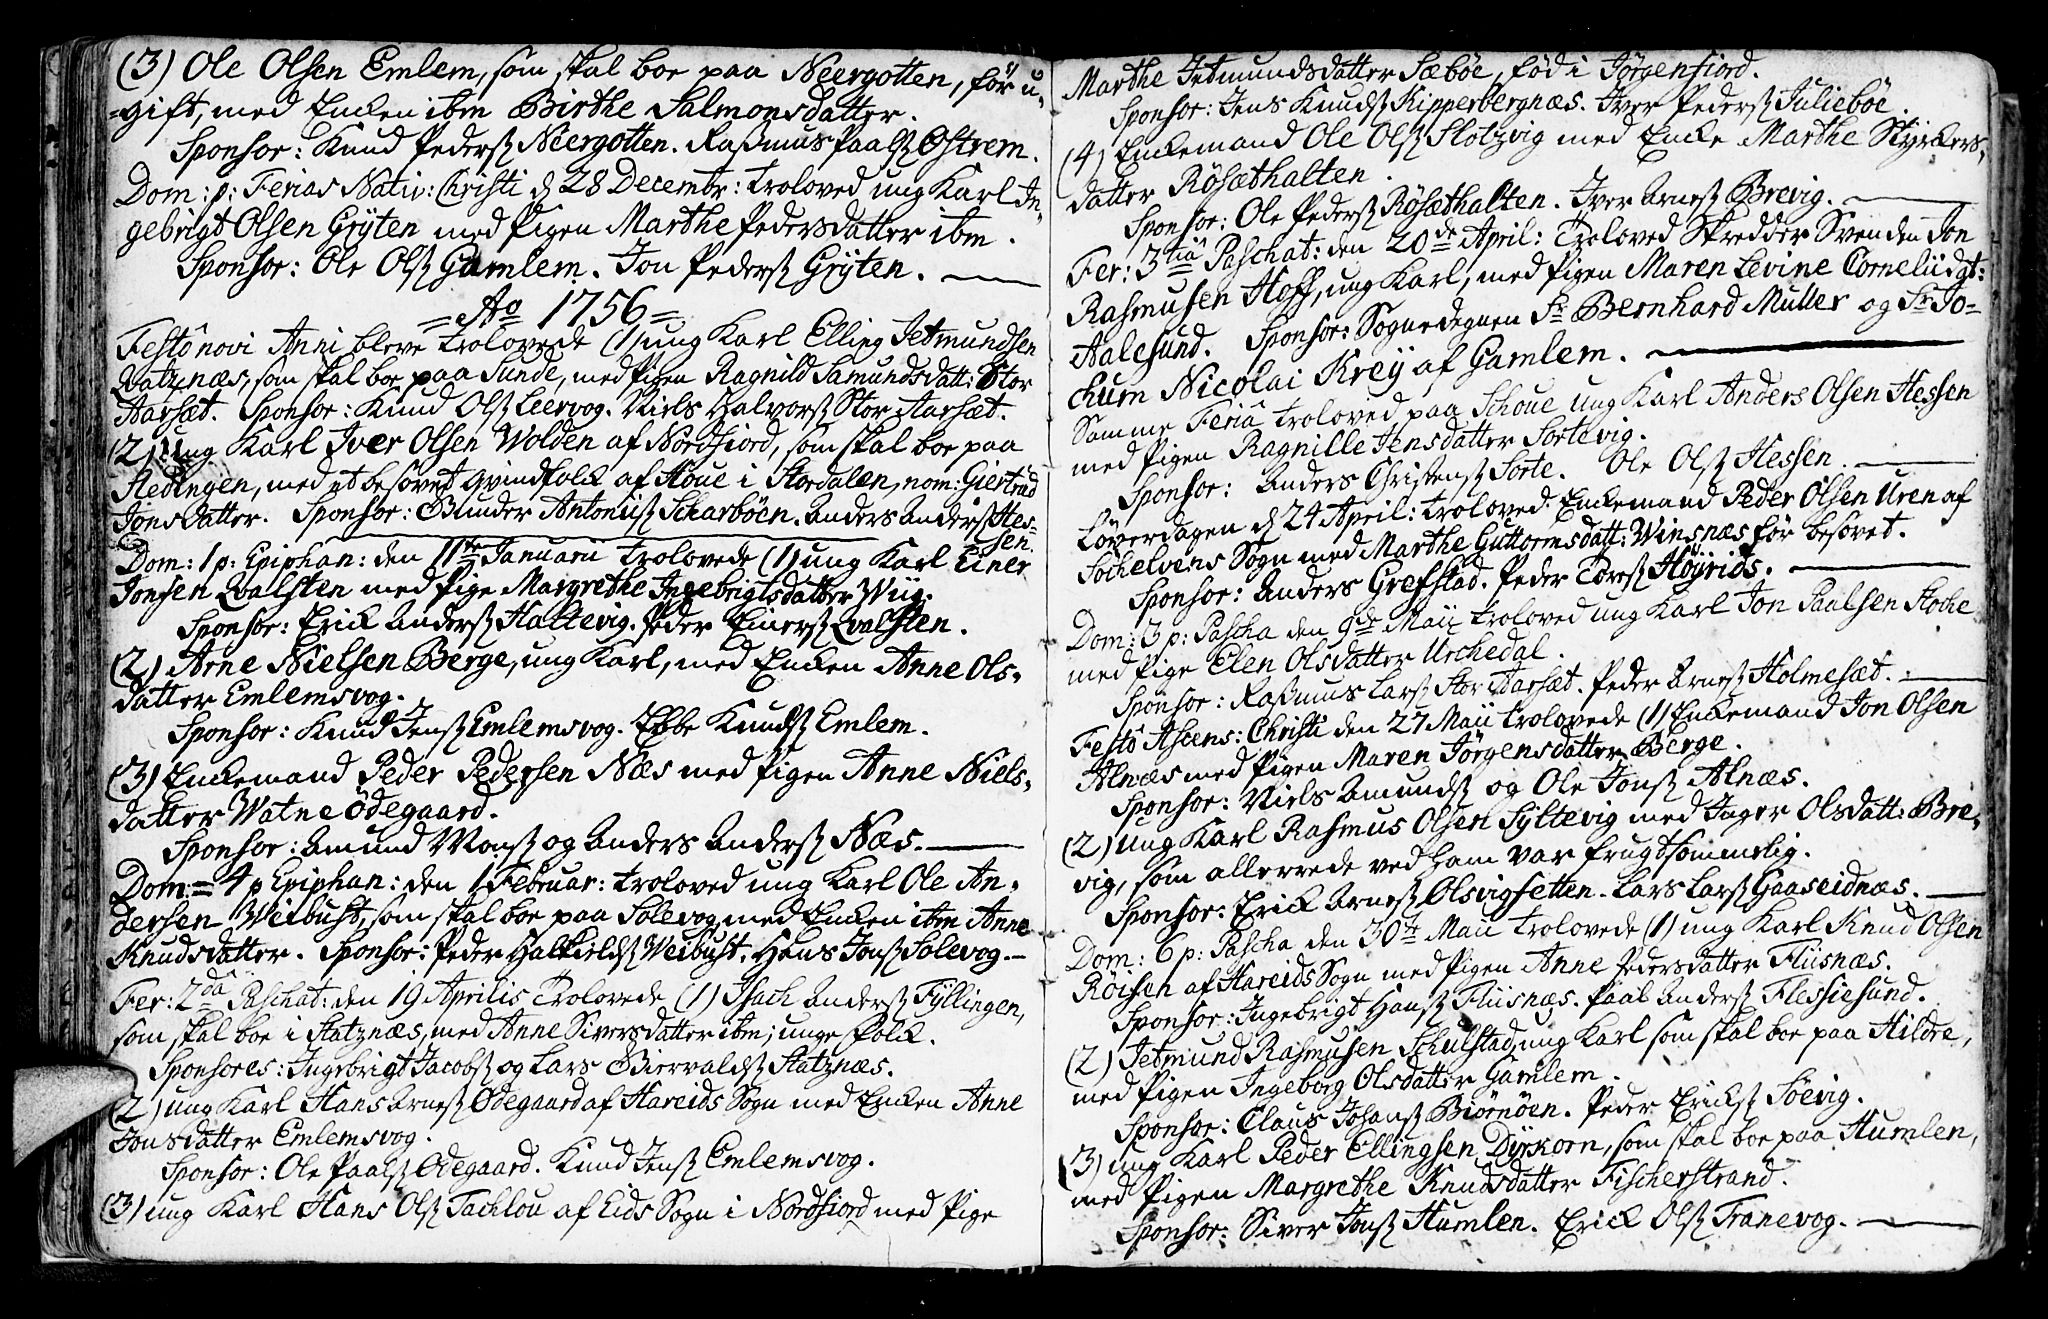 (3) Ole Olsen Emlem, som skal boe paa Neergotten, før u-
-gift, med Encken ibm Birthe Salmonsdatter.
Sponsor: Knud Pederß Neergotten. Raßmus Paalß Østrem.
Dom: p: Ferias Nativ: Christi d 28 Decembr: troloved ung Karl In-
gebrigt Olsen Grÿten med Pigen Marthe Pedersdatter ibm.
Sponsor: Ole Olß Gamlem. Jon Pederß Grÿten.
= Ao 1756 =
Festo novi Anni bleve trolovede (1) ung Karl Elling Jetmundsen
Ratznæs, som skal boe paa Sunde, med Pigen Ragnild Samundsdatt: Stor
Aarsæt. Sponsor: Knud Olß Leervog. Niels Halvorß Stor Aarsæt.
(2) Ung Karl Iver Olsen Wolden af Nordfiord, som skal boe paa
Hedingen, med et besovet qvindfolck af Houe i Stordalen, nom: Giertrud
Jonsdatter. Sponsor: Gunder Antoniiß Scharbøen. Anders Anderß Hes-
sen.
Dom: 1 p: Epiphan: den 11te Januarii trolovede (1) ung Karl Einer
Jonsen Qvalsten med Pige Margrethe Ingebrigtsdatter Wiig.
Sponsor: Erick Anderß Haltevig. Peder Einerß Qvalsten.
(2) Arne Nielsen Berge, ung Karl, med Encken Anne Ols-
datter Emlemsvog.
Sponsor: Knud Jenß Emlemsvog. Ebbe Knudß Emlem.
(3) Enckemand Peder Pedersen Næs med Pigen Anne Niels-
datter Watne Ødegaard.
Sponsor: Amund Monß og Anders Anderß Næs.
Dom: 4 p Epiphan: den 1 Februar: troloved ung Karl Ole An-
dersen Weibust, som skal boe paa Solevog med Encken ibm Anne
Knudsdatter. Sponsor: Peder Halkieldß Weibust. Hans Jonß Solevog.
Fer: 2da Paschat: den 19 Aprilis trolovede (1) Isach Anderß Fÿllingen,
som skal boe i Statznæs, med Anne Siversdatter ibm; unge folck.
Sponsores: Ingebrigt Jacobß og Lars Biervaldß Statznæs.
(2) ung Karl Hans Arneß Ødegaard af Hareids Sogn med Encken Anne
Jonsdatter Emlemsvog.
Sponsor: Ole Paalß Ødegaard. Knud Jenß Emlemsvog.
(3) ung Karl Hans Olß Tachlou af Eids Sogn i Nordfiord med Pige
Marthe Jetmundsdatter Sæbøe, fød i Jørgenfiord.
Sponsor: Jens Knudß Kipperbergnæs. Iver Pederß Juliebøe.
(4) Enckemand Ole Olß Slotzvig med Encke Marthe Stÿrkers-
datter Røsæthalten.
Sponsor: Ole Pederß Røsæthalten. Iver Arneß Brevig.
Fer: 3tia Paschat: den 20de April: Troloved Skredder Svenden Jon
Rasmusen Hoff, ung Karl, med Pigen Maren Levine Corneliidgt:
Aalesund. Sponsor: Sognedegnen Sr Bernhard Muller og Sr Jo-
chum Nicolai Kreÿ af Gamlem.
Samme Feria troloved paa Schoue ung Karl Anders Olsen Hessen
med Pigen Ragnille Jensdatter Sortevig.
Sponsor: Anders Christenß Sorte. Ole Olß Hessen.
Løverdagen d 24 April: troloved Enckemand Peder Olsen Uren af
Sochelvens Sogn med Marthe Guttormsdatt: Winsnæs før besovet.
Sponsor: Anders Grefstad. Peder Toreß Høÿrids.
Dom: 3 p: Pascha den 9de Maij troloved ung Karl Jon Paalsen Hoche
med Pige Elen Olsdatter Urchedal.
Sponsor: Raßmus Larß Stor Aarsæt. Peder Arneß Holmesæt.
Festo Ascens: Christi den 27 Maii trolovede (1) Enckemand Jon Olsen
Alnæs med Pigen Maren Jørgensdatter Berge.
Sponsor: Niels Amundß og Ole Jonß Alnæs.
(2) Ung Karl Rasmus Olsen Sÿltevig med Inger Olsdatt: Bre-
vig, som allerrede ved ham var frugtsommelig.
Sponsor: Erick Arneß Olsvigsetten. Lars Larß Gaaseidnæs.
Dom: 6 p: Pascha den 30te Maii trolovede (1) ung Karl Knud Olsen
Røisen af Hareids Sogn med Pigen Anne Pedersdatter Fliisnæs.
Sponsor: Ingebrigt Hansß Fliisnæs. Paal Anderß Flessiesund.
(2) Jetmund Rasmusen Schulstad, ung Karl som skal boe paa Hildre,
med Pigen Ingeborg Olsdatter Gamlem.
Sponsor: Claus Johanß Biørnøen. Peder Erickß Søevig.
(3) ung Karl Peder Ellingsen Dÿrkorn, som skal boe paa Humlen,
med Pigen Margrethe Knudsdatter Fischerstrand.
Sponsor: Siver Jonß Humlen. Erick Olß Tranevog.